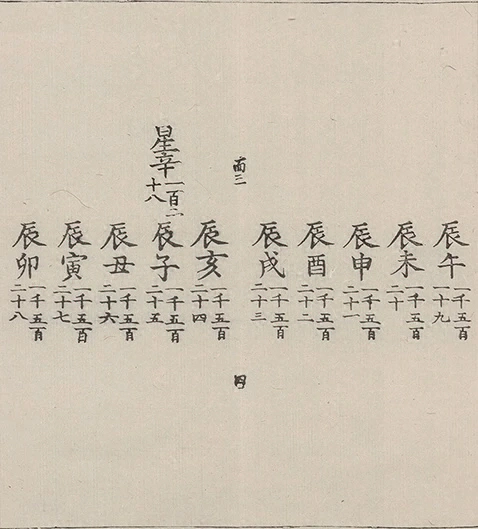 辰午一千五百一十九
辰未一千五百二十
辰申一千五百二十一
辰酉一千五百二十二
辰戌一千五百二十三
面三
四
辰亥一千五百二十四
星辛一百二十八
辰子一千五百二十五
辰丑一千五百二十六
辰寅一千五百二十七
辰卯一千五百二十八